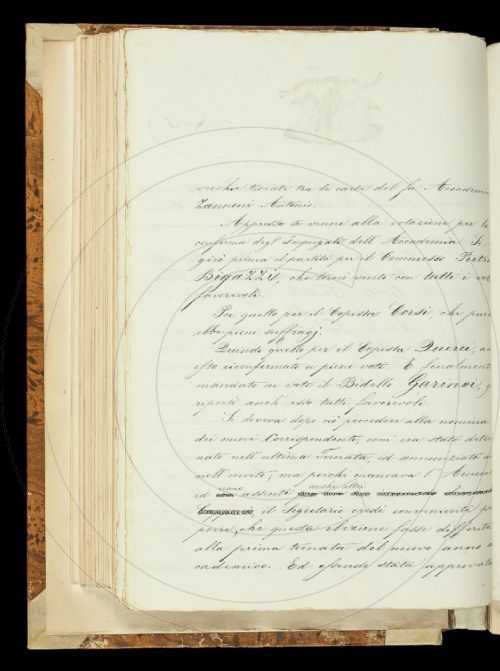 vecchie trovate tra le carte del fu Accademi
Zannoni Antonio.
Appresso si venne alla votazione per la
conferma degl'Impiegati dell'Accademia. Si
girò prima il partito per il Commesso Pietro
Bigazzi, che tornò vinto con tutti i vo
favorevoli.
Poi quello per il Copista Corsi, che pure
ebbe pieni suffragj.
Quindi quello per il Copista Querci, an
esso riconfermato a pieni voti. E finalmente
mandato ai voti il Bidello Garinei,
riportò anch'esso tutti favorevoli.
Si doveva dopo ciò procedere alla nomina
dei nuovi Corrispondenti, com'era stato deter
nato nell'ultima Tornata, ed annunziato
nell'invito; ma poichè mancava l'
ed erano assenti anche altri
il Segretario credè conveniente pro
porre, che questa elezione fosse differita
alla prima tornata del nuovo anno
cademico. Ed essendo stata approvata